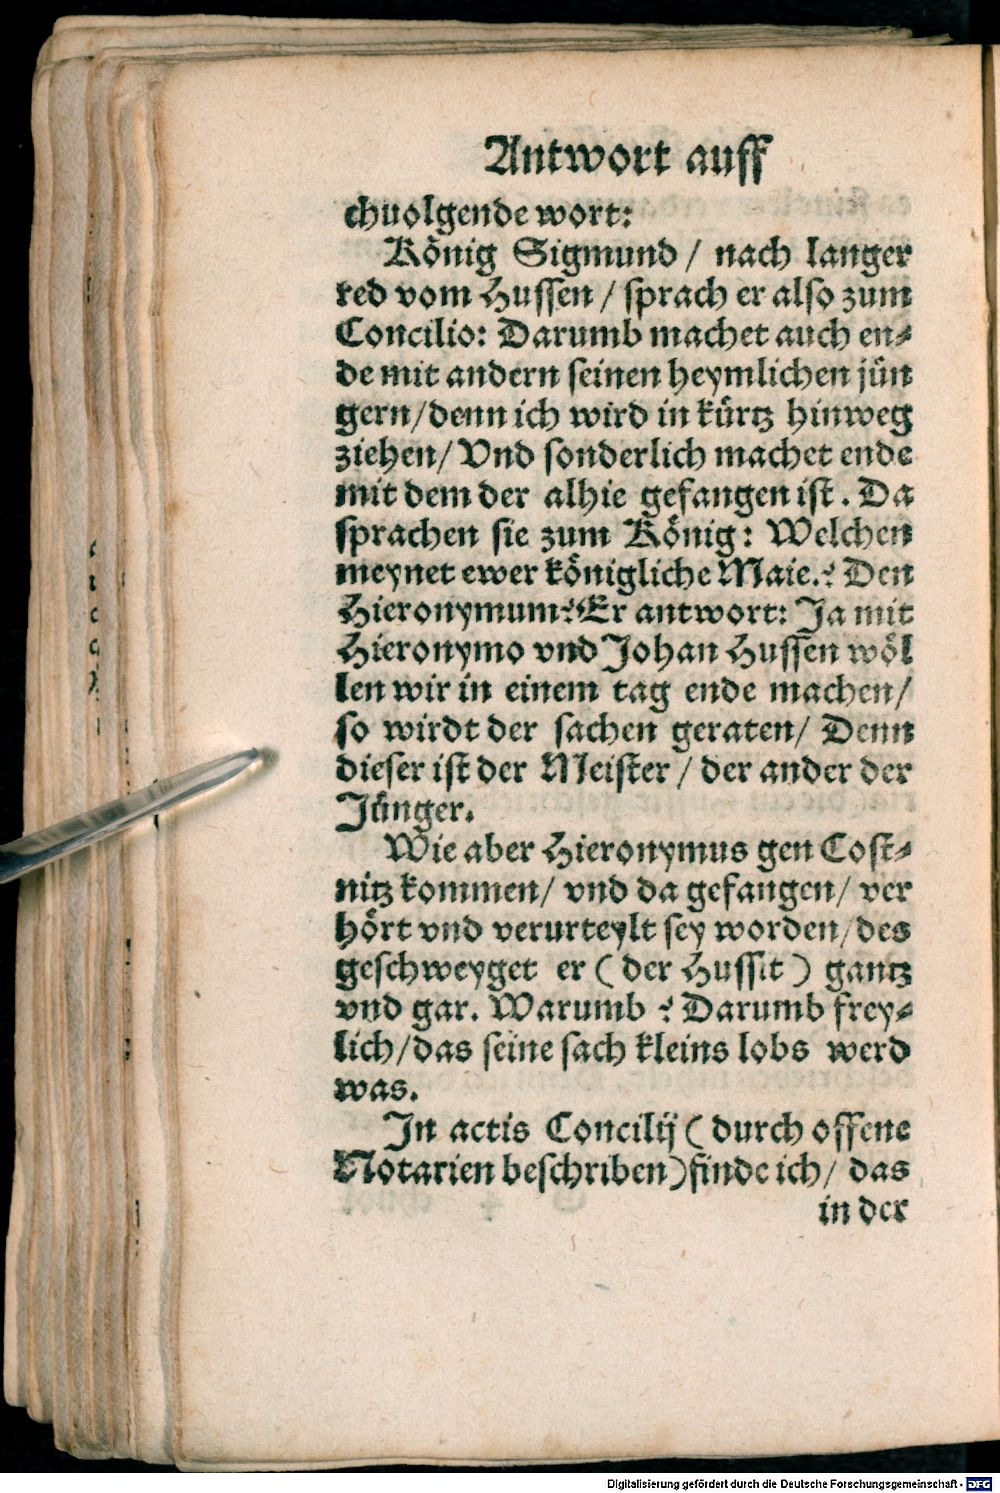 Antwort auff
chuolgende wort:
König Sigmund / nach langer
red vom Hussen / sprach er also zum
Concilio: Darumb machet auch en⸗
de mit andern seinen heymlichen jün
gern/denn ich wird in kürtz hinweg
ziehen/ Vnd sonderlich machet ende
mit dem der alhie gefangen ist. Da
sprachen sie zum König: Welchen
meynet ewer königliche Maie.? Den
Hieronymum? Er antwort: Ja mit
Hieronymo vnd Johan Hussen wöl
len wir in einem tag ende machen/
so wirdt der sachen geraten/ Denn
dieser ist der Meister / der ander der
Jünger.
Wie aber Hieronymus gen Cost⸗
nitz kommen/ vnd da gefangen/ ver
hört vnd verurteylt sey worden/des
geschweyget er ( der Hussit ) gantz
vnd gar. Warumb ? Darumb frey⸗
lich/das seine sach kleins lobs werd
was.
In actis Concilij ( durch offene
Notarien beschriben)finde ich/ das
in der
Digitalisierung gefördert durch die Deutsche Forschungsgemeinschaft - DFG